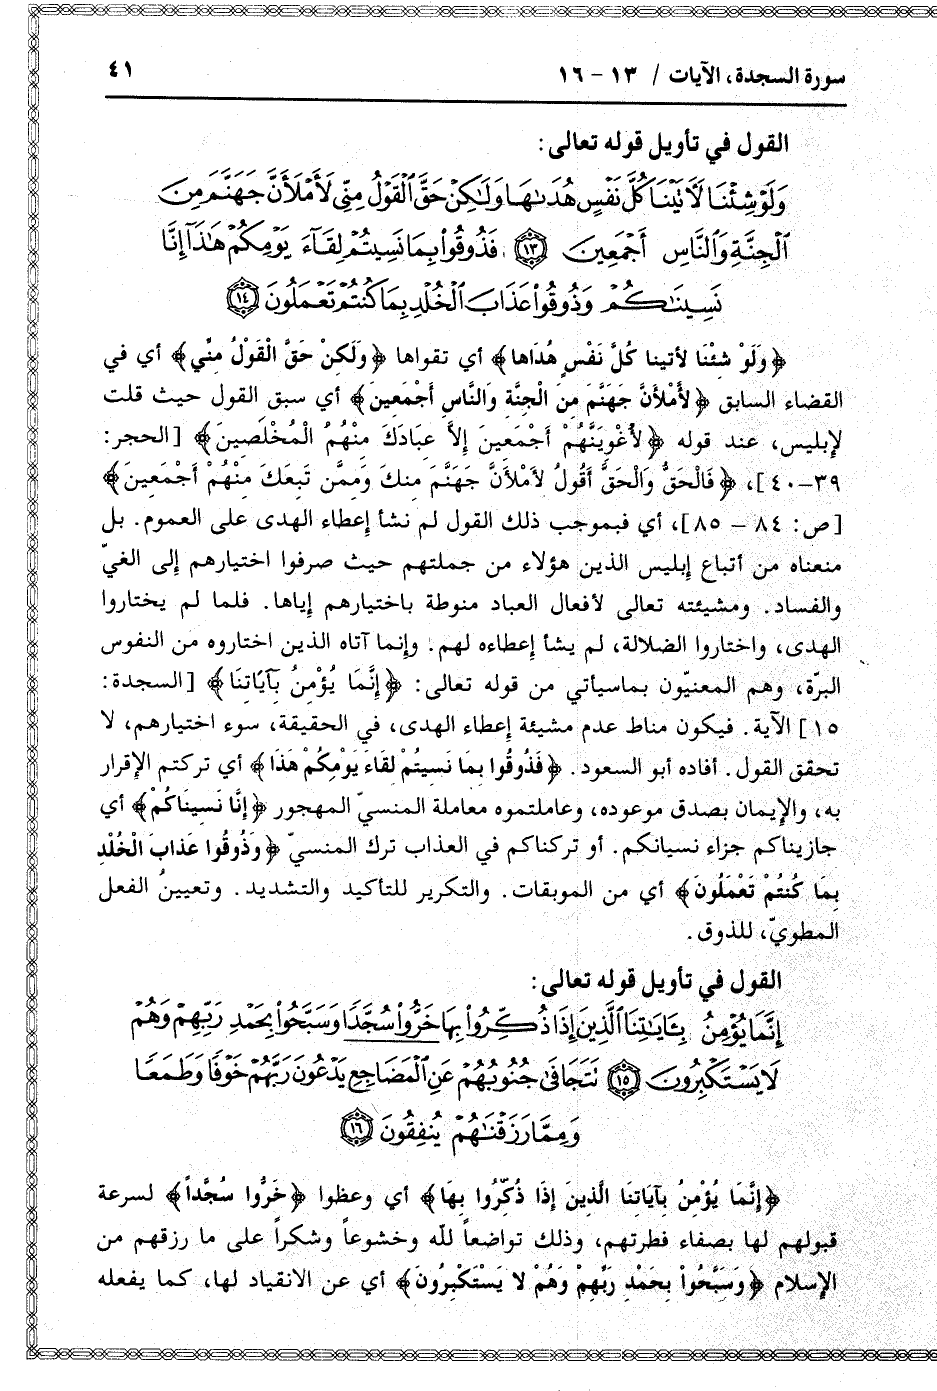 سورة السجدة، الآيات / ١٣ – ١٦
٤١
القول في تأويل قوله تعالى:
وَلَوْ شِئْنَا لَآتَيْنَا كُلَّ نَفْسٍ هُدَىٰهَا وَلَٰكِنْ حَقَّ ٱلْقَوْلُ مِنِّى لَأَمْلَأَنَّ جَهَنَّمَ مِنَ
ٱلْجِنَّةِ وَٱلنَّاسِ أَجْمَعِينَ ۝١٣ فَذُوقُواْ بِمَا نَسِيتُمْ لِقَآءَ يَوْمِكُمْ هَٰذَآ إِنَّا
نَسِينَٰكُمْ وَذُوقُواْ عَذَابَ ٱلْخُلْدِ بِمَا كُنتُمْ تَعْمَلُونَ ۝١٤
﴿وَلَوْ شِئْنَا لأتينا كُلَّ نَفْسٍ هُدَاها﴾ أي تقواها ﴿وَلَكِنْ حَقَّ الْقَوْلُ مِنِّي﴾ أي في
القضاء السابق ﴿لأَمْلأَنَّ جَهَنَّمَ مِنَ الْجِنَّةِ وَالنَّاسِ أَجْمَعِينَ﴾ أي سبق القول حيث قلت
لإبليس، عند قوله ﴿لأُغْوِيَنَّهُمْ أَجْمَعِينَ إِلاَّ عِبَادَكَ مِنْهُمُ الْمُخْلَصِينَ﴾ [الحجر:
٣٩–٤٠]، ﴿فَالْحَقُّ وَالْحَقَّ أَقُولُ لأَمْلأَنَّ جَهَنَّمَ مِنكَ وَمِمَّن تَبِعَكَ مِنْهُمْ أَجْمَعِينَ﴾
[ص: ٨٤ – ٨٥]، أي فبموجب ذلك القول لم نشأ إعطاء الهدى على العموم. بل
منعناه من أتباع إبليس الذين هؤلاء من جملتهم حيث صرفوا اختيارهم إلى الغيّ
والفساد. ومشيئته تعالى لأفعال العباد منوطة باختيارهم إياها. فلما لم يختاروا
الهدى، واختاروا الضلالة، لم يشأ إعطاءه لهم. وإنما آتاه الذين اختاروه من النفوس
البرّة، وهم المعنيّون بماسيأتي من قوله تعالى: ﴿إِنَّمَا يُؤْمِنُ بِآيَاتِنَا﴾ [السجدة:
١٥] الآية. فيكون مناط عدم مشيئة إعطاء الهدى، في الحقيقة، سوء اختيارهم، لا
تحقق القول. أفاده أبو السعود. ﴿فَذُوقُوا بِمَا نَسِيتُمْ لِقَاءَ يَوْمِكُمْ هَذَا﴾ أي تركتم الإقرار
به، والإيمان بصدق موعوده، وعاملتموه معاملة المنسيّ المهجور ﴿إِنَّا نَسِينَاكُمْ﴾ أي
جازيناكم جزاء نسيانكم. أو تركناكم في العذاب ترك المنسيّ ﴿وَذُوقُوا عَذابَ الْخُلْدِ
بِمَا كُنتُمْ تَعْمَلُونَ﴾ أي من الموبقات. والتكرير للتأكيد والتشديد. وتعيينُ الفعل
المطويّ، للذوق.
القول في تأويل قوله تعالى:
إِنَّمَا يُؤْمِنُ بِـَٔايَٰتِنَا ٱلَّذِينَ إِذَا ذُكِّرُواْ بِهَا خَرُّواْ سُجَّدًا وَسَبَّحُواْ بِحَمْدِ رَبِّهِمْ وَهُمْ
لَا يَسْتَكْبِرُونَ ۝١٥ تَتَجَافَىٰ جُنُوبُهُمْ عَنِ ٱلْمَضَاجِعِ يَدْعُونَ رَبَّهُمْ خَوْفًا وَطَمَعًا
وَمِمَّا رَزَقْنَٰهُمْ يُنفِقُونَ ۝١٦
﴿إِنَّمَا يُؤْمِنُ بِآيَاتِنَا الَّذِينَ إِذَا ذُكِّرُوا بِهَا﴾ أي وعظوا ﴿خَرُّوا سُجَّداً﴾ لسرعة
قبولهم لها بصفاء فطرتهم، وذلك تواضعاً للّه وخشوعاً وشكراً على ما رزقهم من
الإسلام ﴿وَسَبَّحُواْ بِحَمْدِ رَبِّهِمْ وَهُمْ لا يَسْتَكْبِرُونَ﴾ أي عن الانقياد لها، كما يفعله